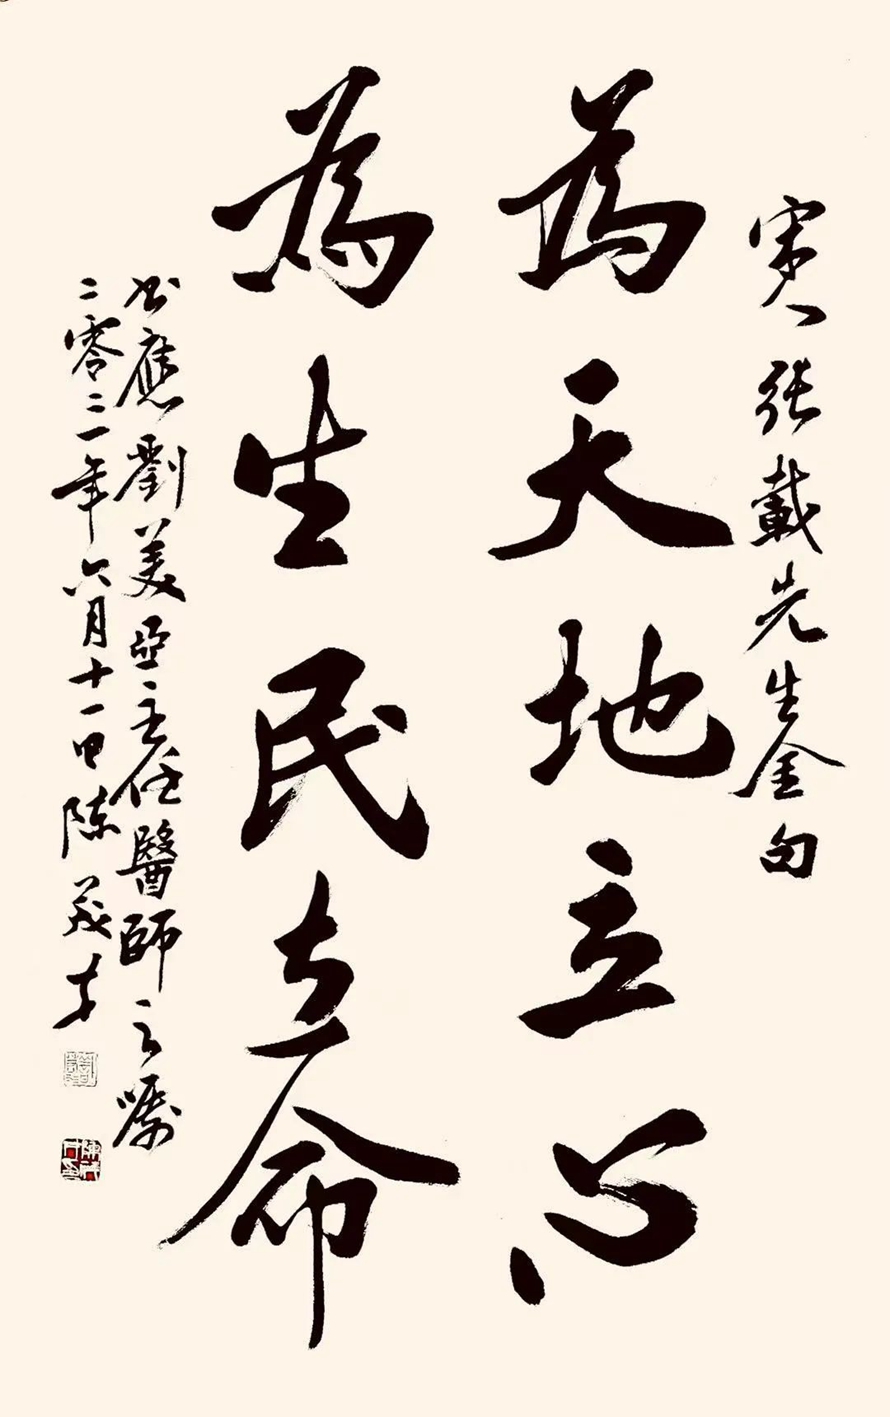 宋人張載先生金句
為天地立心
為生民立命
書應劉美亞主任醫師之囑
二零二一年六月十一日陳茂才